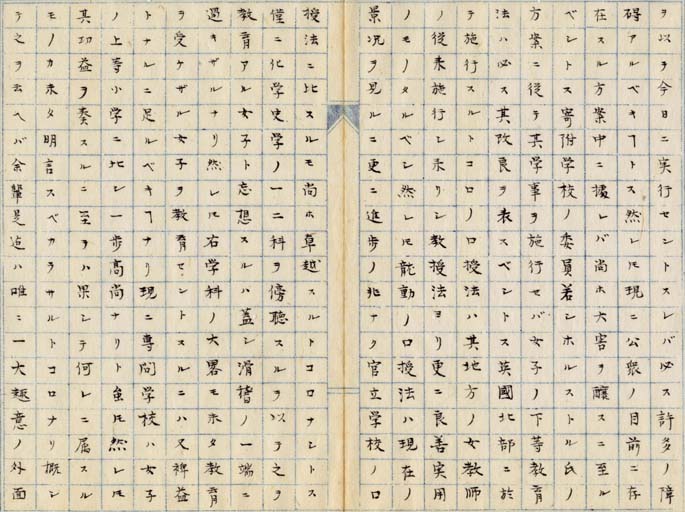 ヲ以テ今日ニ実行セントスレバ必ス許多ノ障
碍アルベキヿトス然レ𪜈現ニ公衆ノ目前ニ存
在スル方案中ニ據レバ尚ホ大害ヲ醸スニ至ル
ベシトス寄附学校ノ委員若シホルストル氏ノ
方案ニ従テ其学事ヲ施行セバ女子ノ下等教育
法ハ必ス其改良ヲ表スベシトス英國北部ニ於
テ施行スルトコロノ口授法ハ其地方ノ女教師
ノ従来施行シ来リシ教授法ヨリ更ニ良善実用
ノモノタルベシ然レ𪜈龍動ノ口授法ハ現在ノ
景况ヲ見ルニ更ニ進歩ノ兆ナク官立学校ノ口
授法ニ比スルモ尚ホ卓越スルトコロナシトス
僅ニ化学史学ノ一二科ヲ傍聴スルヲ以テ之ヲ
教育アル女子ト忘想スルハ蓋シ滑稽ノ一端ニ
過キザルナリ然レ𪜈右学科ノ大畧モ未タ教育
ヲ受ケザル女子ヲ教育セントスルニハ又裨益
トナルニ足ルベキヿナリ現ニ専門学校ハ女子
ノ上等小学ニ比シ一歩高尚ナリト虽𪜈然レ𪜈
其功益ヲ奏スルニ至テハ果シテ何レニ属スル
モノカ未タ明言スベカラサルトコロナリ概シ
テ之ヲ云ヘバ余輩是迠ハ唯ニ一大趣意ノ外面